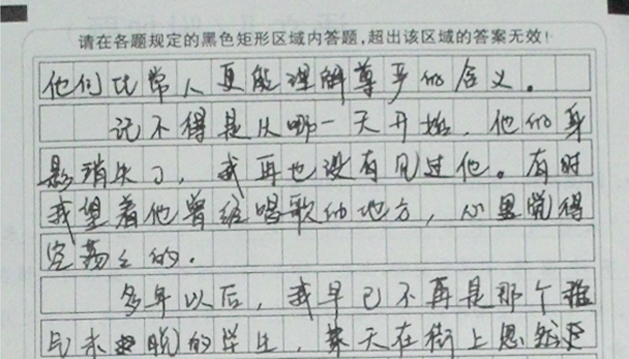 请在各题规定的黑色矩形区域内答题,超出该区域的答案无效!
他们比常人更能理解尊严的含义。
记不得是从哪一天开始,他的身
影消失了,我再也没有见过他。有时
我望着他曾经唱歌的地方,心里觉得
空荡々的。
多年以后,我早已不再是那个稚
气未脱的学生,某天在街上忽然